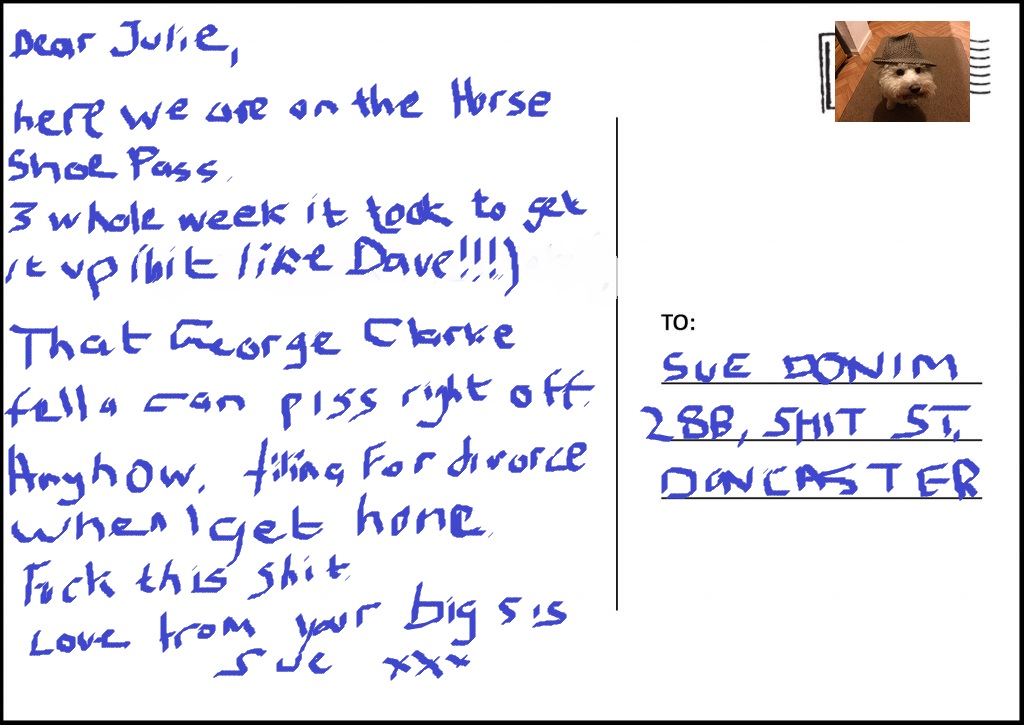 Dear Julie,
here we are on the Horse
Shoe Pass.
3 whole week it took to get
it up (bit like Dave!!!)
That George Clarke
fella can piss right off.
Anyhow, filing for divorce
when I get home.
Fuck this shit.
Love from your big sis
Sue xxx
TO:
SUE DONIM
28B, SHIT ST,
DONCASTER